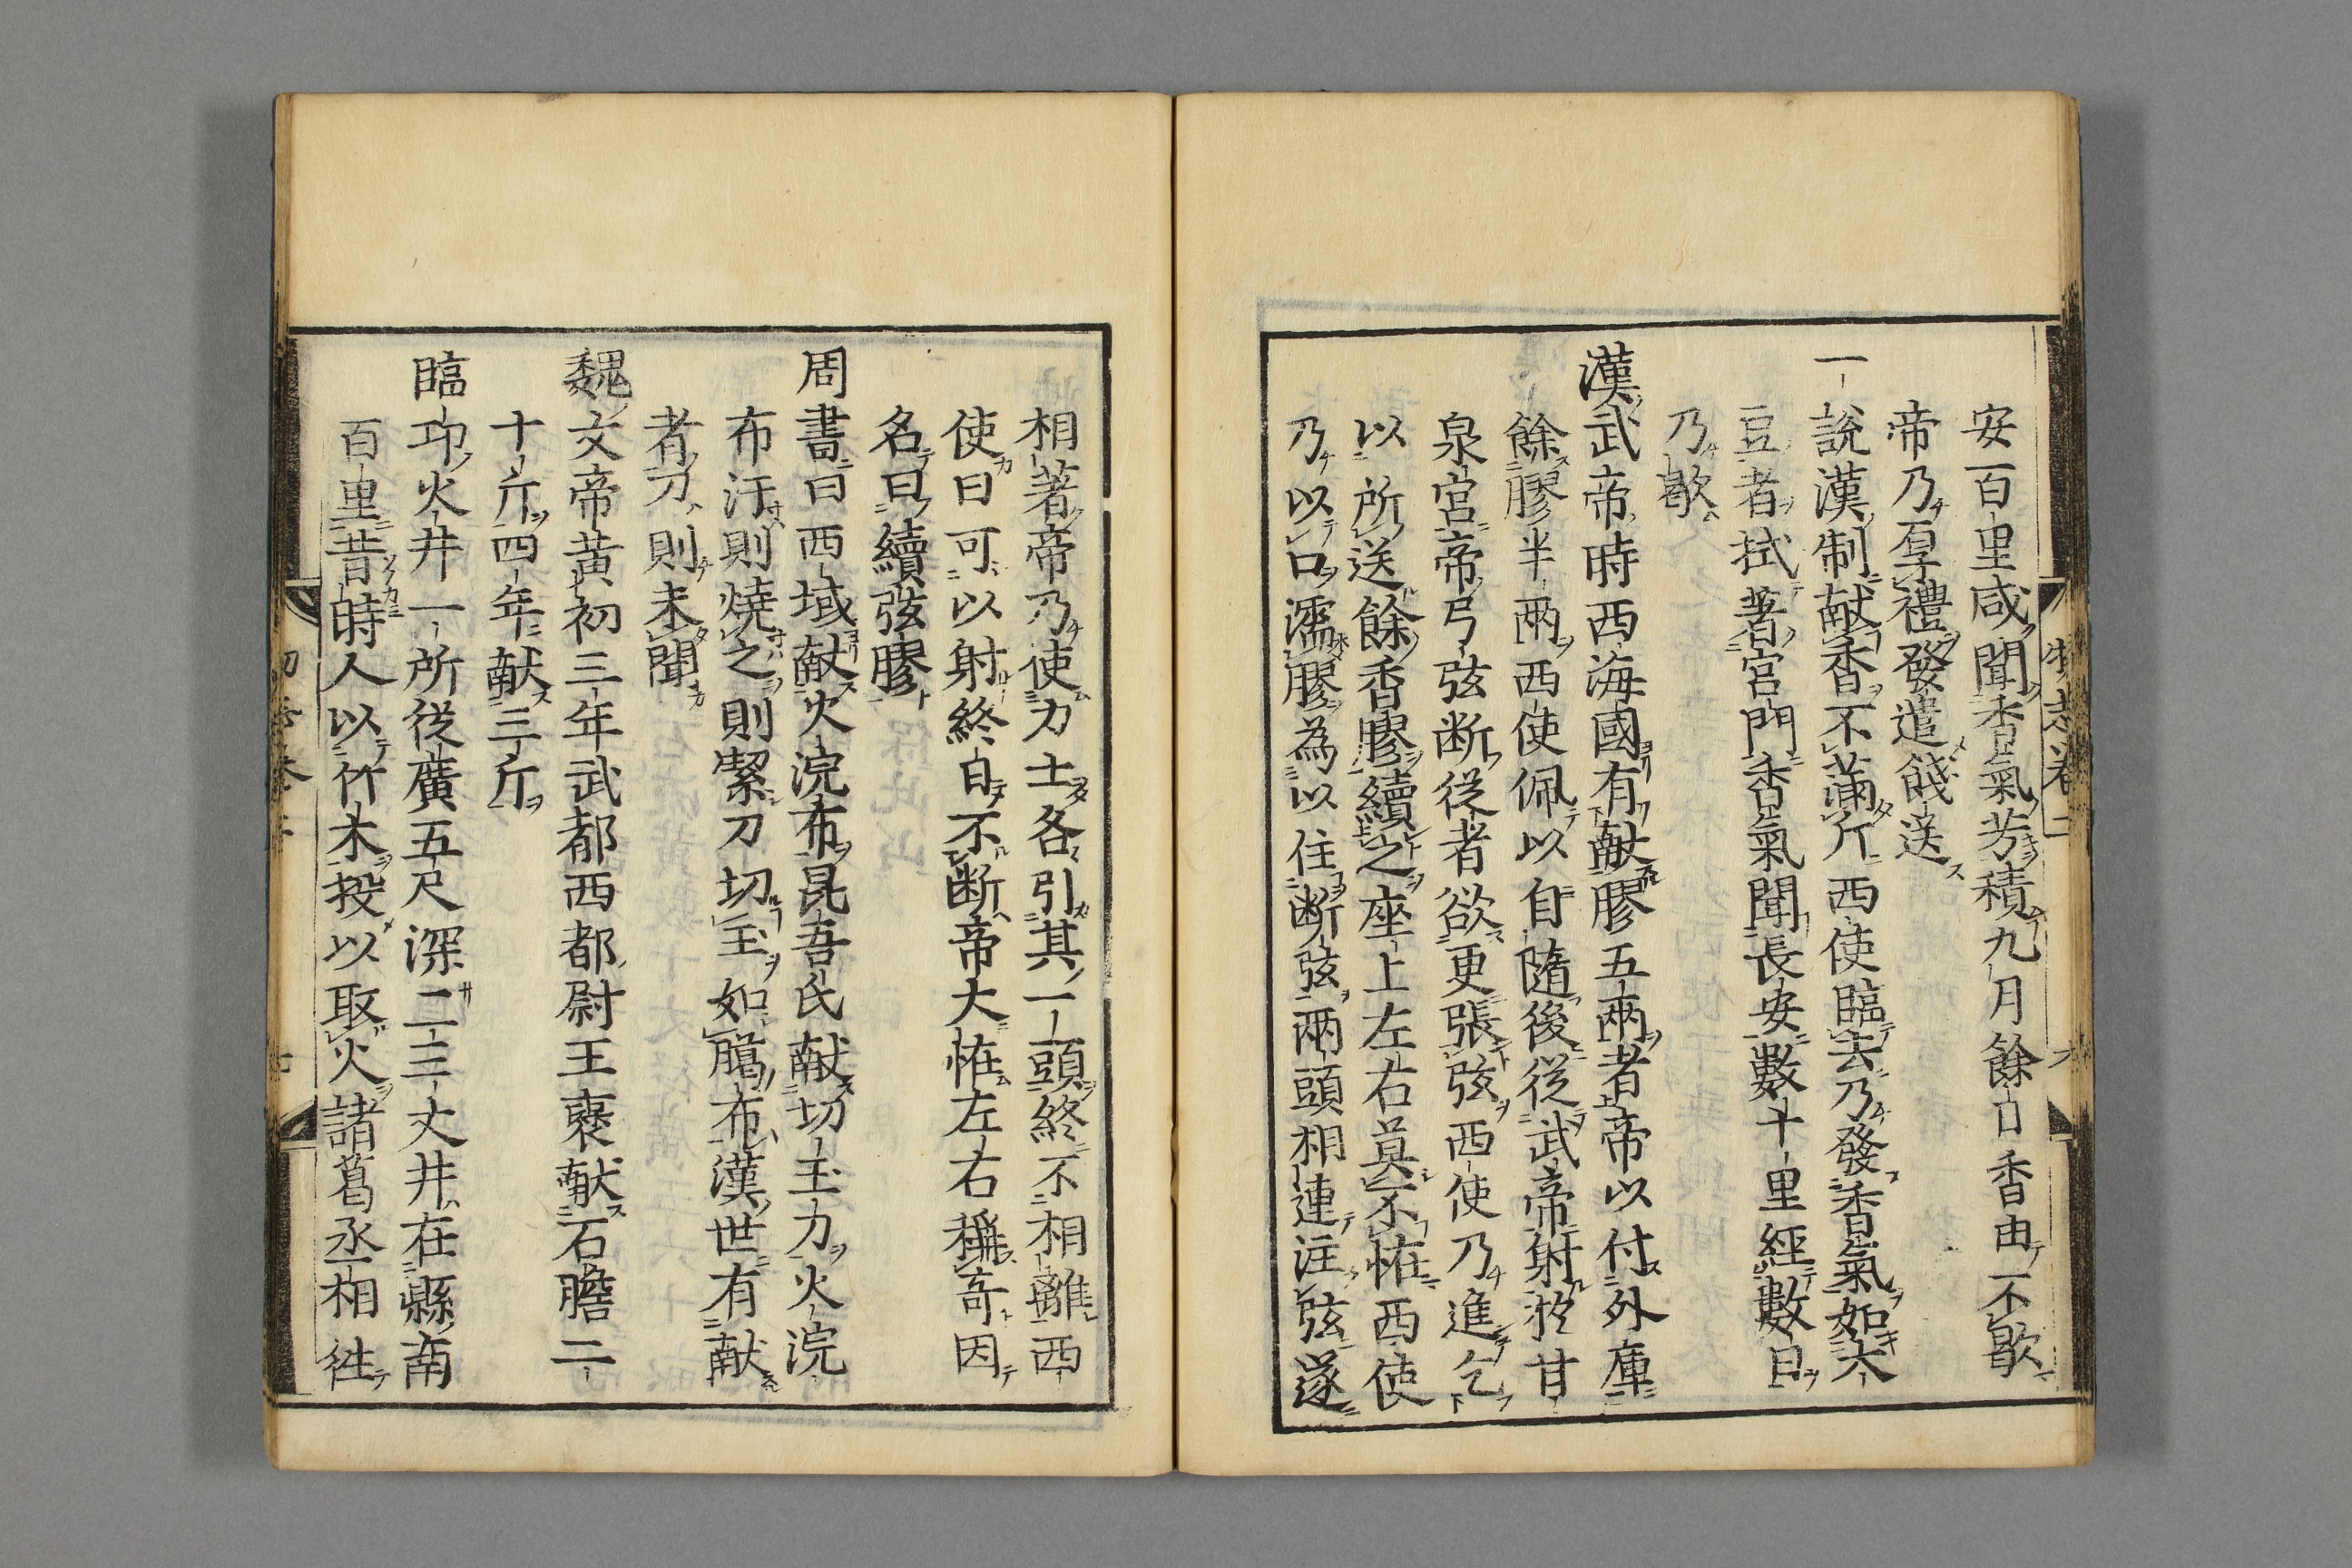 安百里咸聞香氣芳積九月餘日香由不歇
帝乃厚禮發遣餞送
一説漢制献香不滿斤西使臨去乃發香氣如大
豆者拭著宮門香氣聞長安數十里經數日
乃歇
漢武帝時西海國有献膠五兩者帝以付外庫
餘膠半兩西使佩以自隨後從武帝射於甘
泉宮帝弓弦断從者欲更張弦西使乃進乞
以所送餘香膠續之座上左右莫不恠西使
乃以口濡膠為以住断弦兩頭相連注弦遂
相著帝乃使力士各引其一頭終不相離西
使曰可以射終日不断帝大恠左右稱奇因
名曰續弦膠
周書曰西域献火浣布昆吾氏献切玉刀火浣
布汙則燒之則絜刀切玉如臈布漢世有献
者刀則未聞
魏文帝黄初三年武都西都尉王褒献石膽二
十斤四年献三斤
臨邛火井一所從廣五尺深二三丈井在縣南
百里昔時人以竹木投以取火諸葛丞相徃